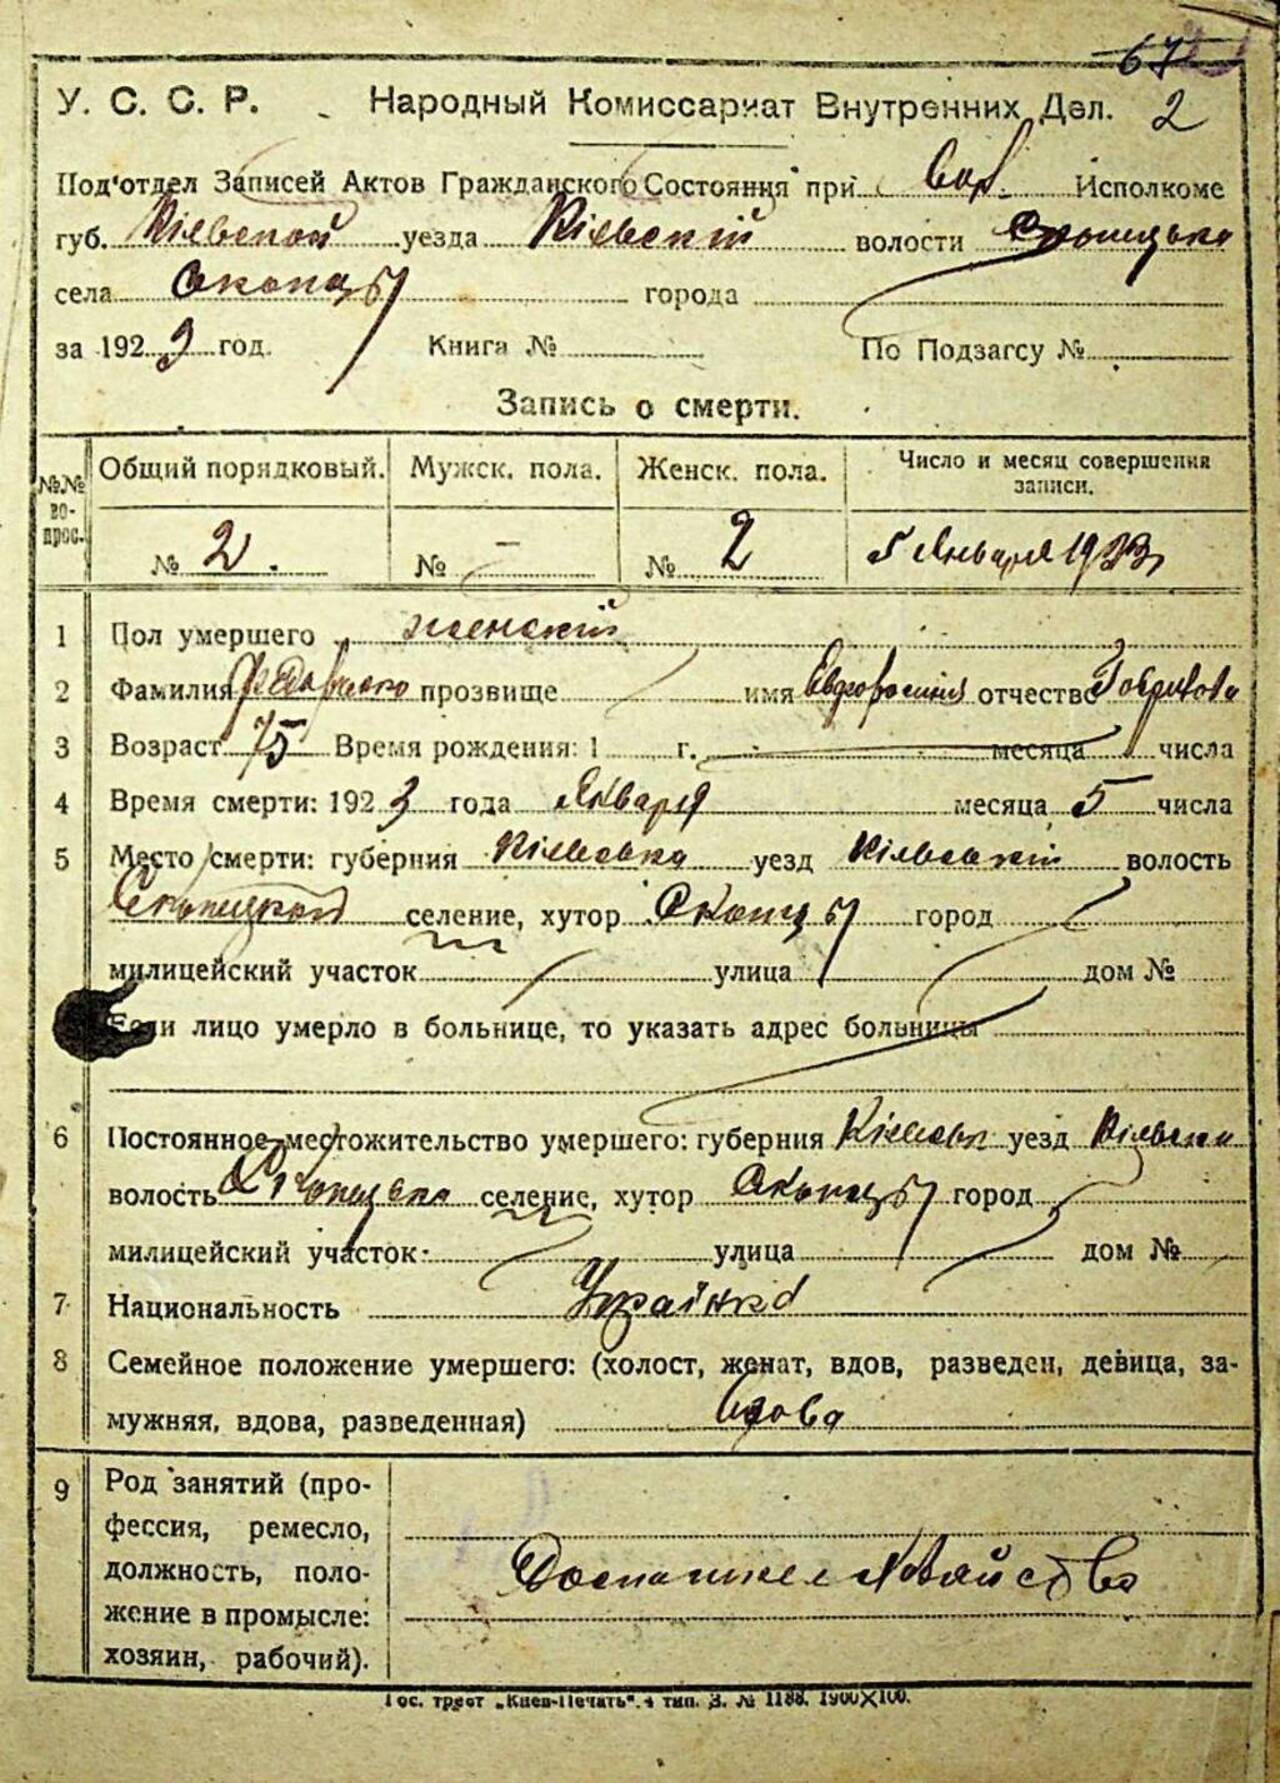 67
У. С. С. Р. Народный Комиссариат Внутренних Дел. 2
Под'отдел Записей Актов Гражданского Состояния при Вол. Исполкоме
губ. Кіевской уезда Кіевскій волости
села Скопцы города
за 1923 год. Книга № По Подзагсу №
Запись о смерти.
№№ вопрос. Общий порядковый. Мужск. пола. Женск. пола. Число и месяц совершения записи.
№ 2. № – № 2 5 Января 1923
1 Пол умершего женский
2 Фамилия прозвище имя Евфросинія отчество
3 Возраст 75 Время рождения: 1 г. месяца числа
4 Время смерти: 1923 года Января месяца 5 числа
5 Место смерти: губерния Кіевська уезд Кіевський волость
Скопецкой селение, хутор Скопцы город
милицейский участок улица дом №
Если лицо умерло в больнице, то указать адрес больницы
6 Постоянное местожительство умершего: губерния Кіевськ уезд
волость селение, хутор Скопцы город
милицейский участок: улица дом №
7 Национальность Українка
8 Семейное положение умершего: (холост, женат, вдов, разведен, девица, за-
мужняя, вдова, разведенная) вдова
9 Род занятий (про-
фессия, ремесло,
должность, поло-
жение в промысле:
хозяин, рабочий).
Домашнее хозяйство
Гос. трест „Киев-Печать". 4 тип. З. № 1188. 1900×100.